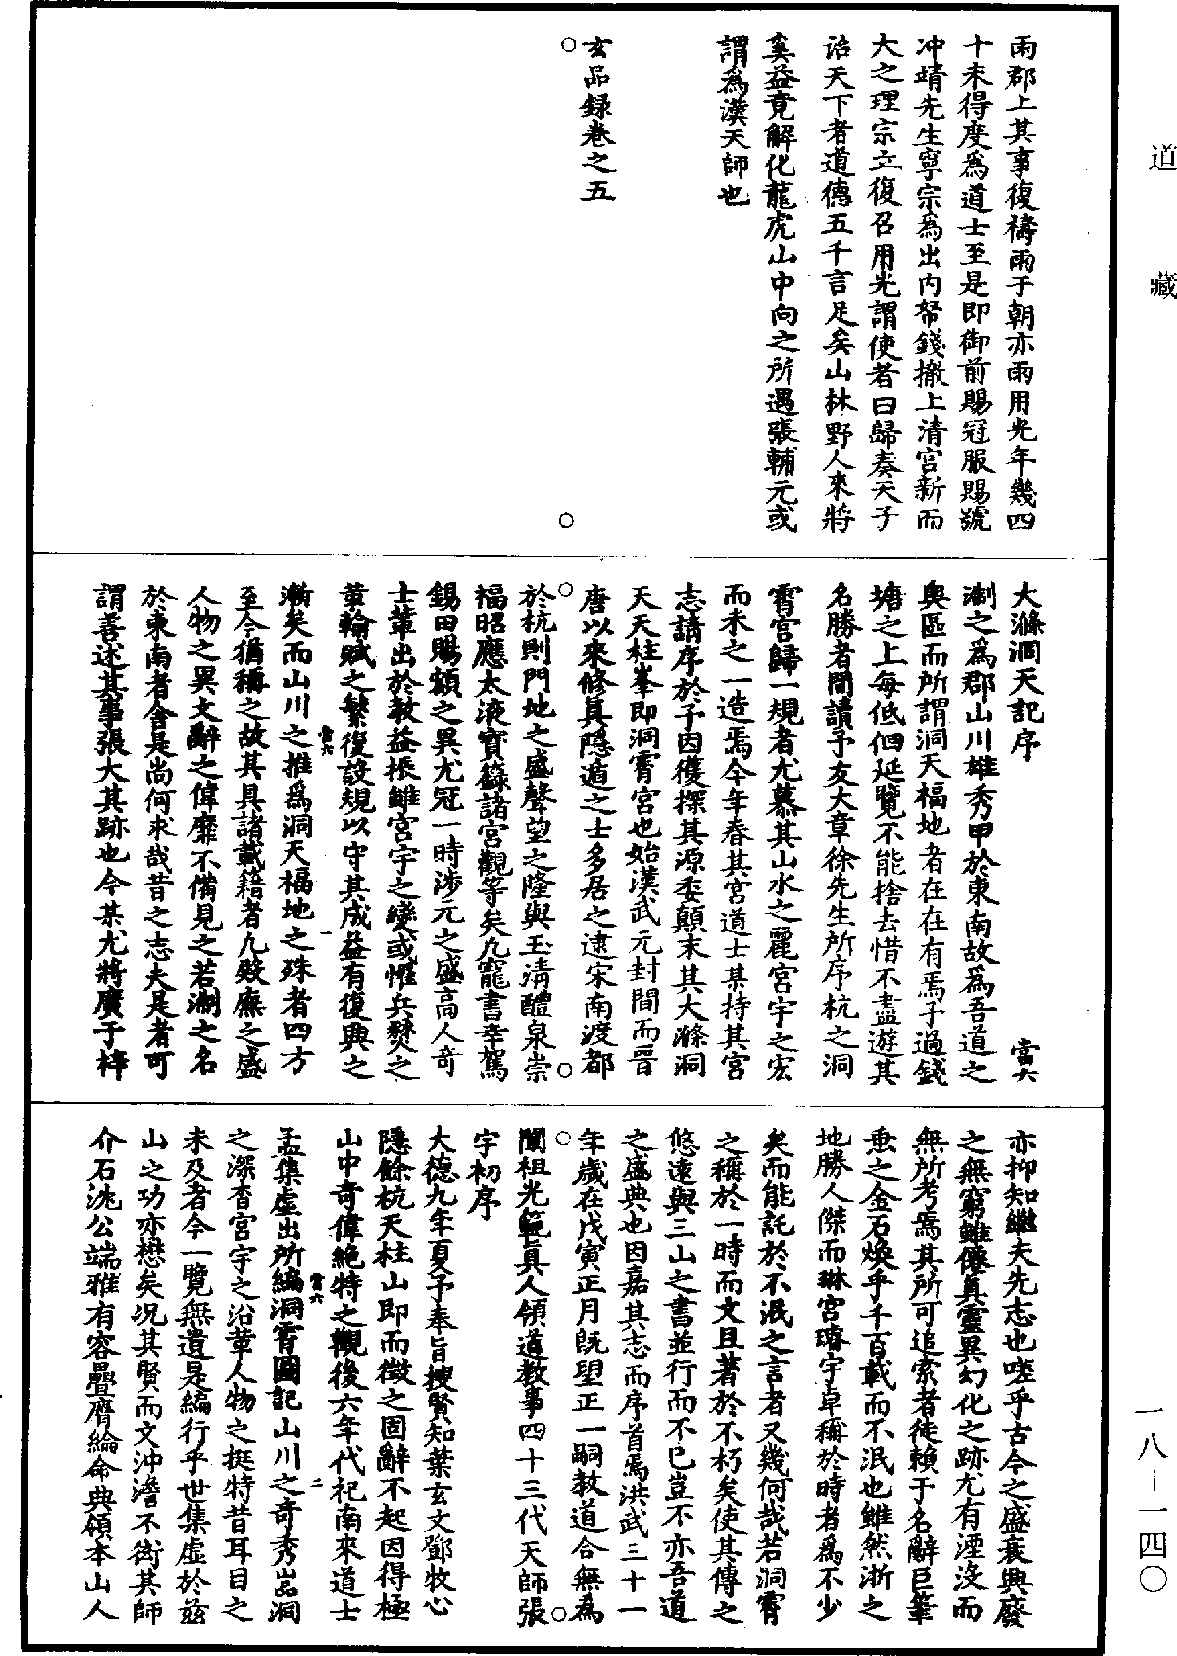 道藏
雨郡上其事復禱雨于朝亦雨用光年幾四
十未得度爲道士至是即御前賜冠服賜號
冲靖先生寧宗爲出内帑錢撤上清宮新而
大之理宗立復召用光謂使者曰歸奏天子
詒天下者道德五千言足矣山林野人來將
奚益竟解化龍虎山中向之所遇張輔元或
謂爲漢天師也
玄品録卷之五
大滌洞天記序
當六
淛之爲郡山川雄秀甲於東南故爲吾道之
奥區而所謂洞天福地者在在有焉予過錢
塘之上每低佪延覽不能捨去惜不盡遊其
名勝者間讀予友大章徐先生所序杭之洞
霄宮歸一規者尤慕其山水之麗宮宇之宏
而未之一造焉今年春其宮道士某持其宮
志請序於予因獲探其源委顛末其大滌洞
天天柱峯即洞霄宮也始漢武元封間而晉
唐以來修真隱遁之士多居之逮宋南渡都
於杭則門地之盛聲望之隆與玉清醴泉崇
福昭應太液寶籙諸宮觀等矣凡寵書幸駕
錫田賜額之異尤冠一時涉元之盛高人奇
士輩出於教益振雖宮宇之變或罹兵燹之
菑輪賦之繁復設規以守其成益有復興之
漸矣而山川之推爲洞天福地之殊者四方
當六
一
至今猶稱之故其具諸載籍者凡殿廡之盛
人物之異文辭之偉靡不備見之若淛之名
於東南者舍是尚何求哉昔之志夫是者可
謂善述其事張大其跡也今某尤將廣于梓
亦抑知繼夫先志也嗟乎古今之盛衰興廢
之無窮雖僊真靈異幻化之跡尤有湮没而
無所考焉其所可追索者徒賴于名辭巨筆
垂之金石焕乎千百載而不泯也雖然浙之
地勝人傑而琳宮璿宇卓稱於時者爲不少
矣而能託於不泯之言者又幾何哉若洞霄
之稱於一時而文且著於不朽矣使其傳之
悠遠與三山之書並行而不已豈不亦吾道
之盛典也因嘉其志而序首焉洪武三十一
年歲在戊寅正月既望正一嗣教道合無爲
闡祖光範真人領道教事四十三代天師張
宇初序
大德九年夏予奉旨搜賢知葉玄文鄧牧心
隱餘杭天柱山即而徵之固辭不起因得極
山中奇偉絶特之觀後六年代祀南來道士
當六
二
孟集虛出所編洞霄圖記山川之奇秀嵓洞
之深杳宮宇之沿革人物之挺特昔耳目之
未及者今一覽無遺是編行乎世集虛於兹
山之功亦懋矣況其賢而文沖澹不衒其師
介石沈公端雅有容疊膺綸命典領本山人
一八－一四〇